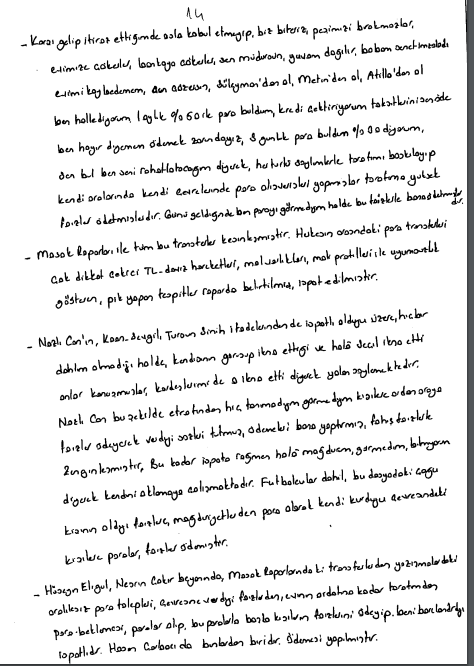 14
- Karşı gelip itiraz ettiğimde asla kabul etmeyip, biz biteriz, peşimizi bırakmazlar,
evimize çökerler, bankaya çökerler, sen müdürsün, yuvam dağılır, babam senet imzaladı
evimi kaybedemem, sen çözersin, Süleyman'dan al, Metin'den al, Atilla'dan al
ben hallediyorum 1 aylık %60 ile para buldum, kredi çektiriyorum taksitlerini sen öde
ben hayır diyemem ödemek zorundayız, 3 günlük para buldum %00 diyorum,
sen bul ben seni rahatlatacağım diyerek, her türlü söylemlerle tarafımı baskılayıp
kendi aralarında kendi çevrelerinde para alışverişleri yapmışlar tarafıma yüksek
faizler ödetmişlerdir. Günü geldiğinde ben parayı görmediğim halde bu faizlerle
- Masak Raporları ile tüm bu transferler kesinleşmiştir. Herkesin arasındaki para transferleri
çok dikkat çekici TL-döviz hareketleri, mal varlıkları, mali profilleri ile uyumsuzluk
gösteren, pik yapan tespitler raporda belirtilmiş, ispat edilmiştir.
- Nazlı Can'ın, Kaan, Sevgil, Turgun Sinih ifadelerinden de ispatlı olduğu üzere, hiçbir
dahlim olmadığı halde, kendisinin ikna ettiği ve halde Seçil ikna etti
onlar konuşmuşlar, kardeşlerimi de o ikna etti diyerek yalan söylemektedir.
Nazlı Can bu şekilde etrafından hiç tanımadığım görmediğim kişilere oradan oraya
faizler ödeyerek verdiği sözleri tutmuş, ödemeleri bana yaptırmış, fahiş faizlerle
zenginleşmiştir, Bu kadar ispata rağmen hala mağdurum, görmedim, bilmiyorum
diyerek kendini aklamaya çalışmaktadır. Futbolcular dahil, bu dosyadaki çoğu
kişinin aldığı faizler, mağduriyetlerden para alarak kendi kurduğu çevresindeki
kişilere paralar, faizler ödemiştir.
- Hüseyin Eligül, Nesrin Çakır beyanında, Masak Raporlarındaki transferlerden yazışmalardaki
aralıksız para talepleri, çevresine verdiği faizlerden, evinin ardına kadar tarafımdan
para beklemesi, paralar alıp, bu paralarla başka kişilerin faizlerini ödeyip, beni borçlandırdığı
ispatlıdır. Hasan Çolbacı da bunlardan biridir. Ödemesi yapılmıştır.